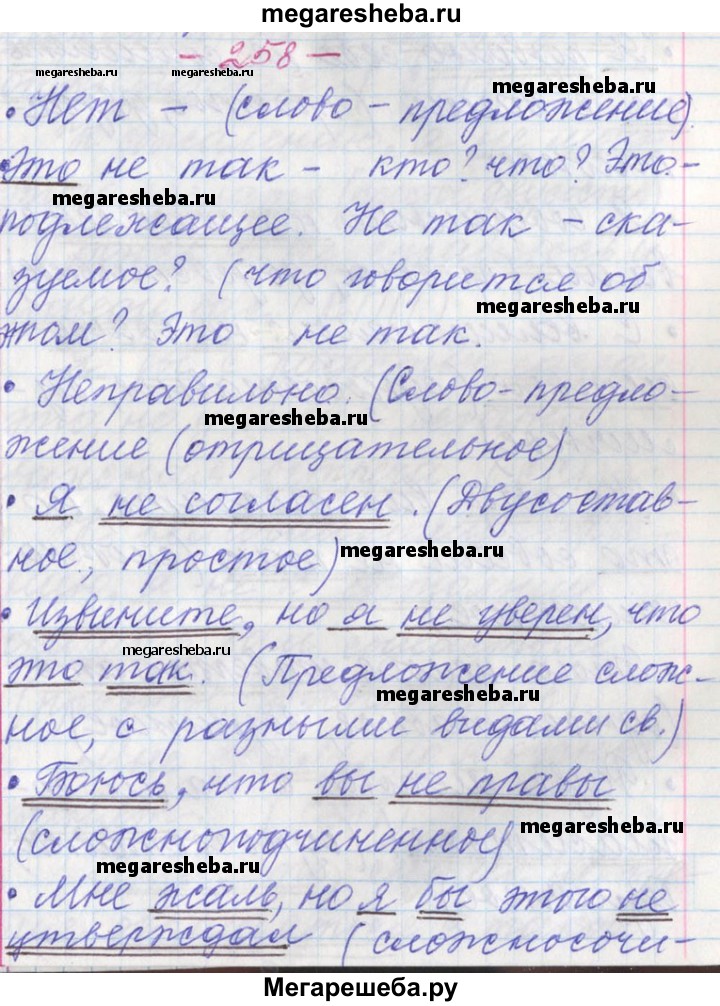 megaresheba.ru
- 258 -
megaresheba.ru
megaresheba.ru
• Нет - (слово - предложение).
• Это не так - кто? что? Это -
megaresheba.ru
подлежащее. Не так - ска-
зуемое? (что говорится об
megaresheba.ru
этом? Это не так.
• Неправильно. (Слово-предло-
megaresheba.ru
жение (отрицательное)
• Я не согласен. (Двусостав-
ное, простое)
megaresheba.ru
• Извините, но я не уверен, что
megaresheba.ru
это так. (Предложение слож-
megaresheba.ru
ное, с разными видами св.)
• Боюсь, что вы не правы
(сложноподчиненное)
megaresheba.ru
megaresheba.ru
• Мне жаль, но я бы этого не
утверждал (сложносочи-
Мегарешеба.ру